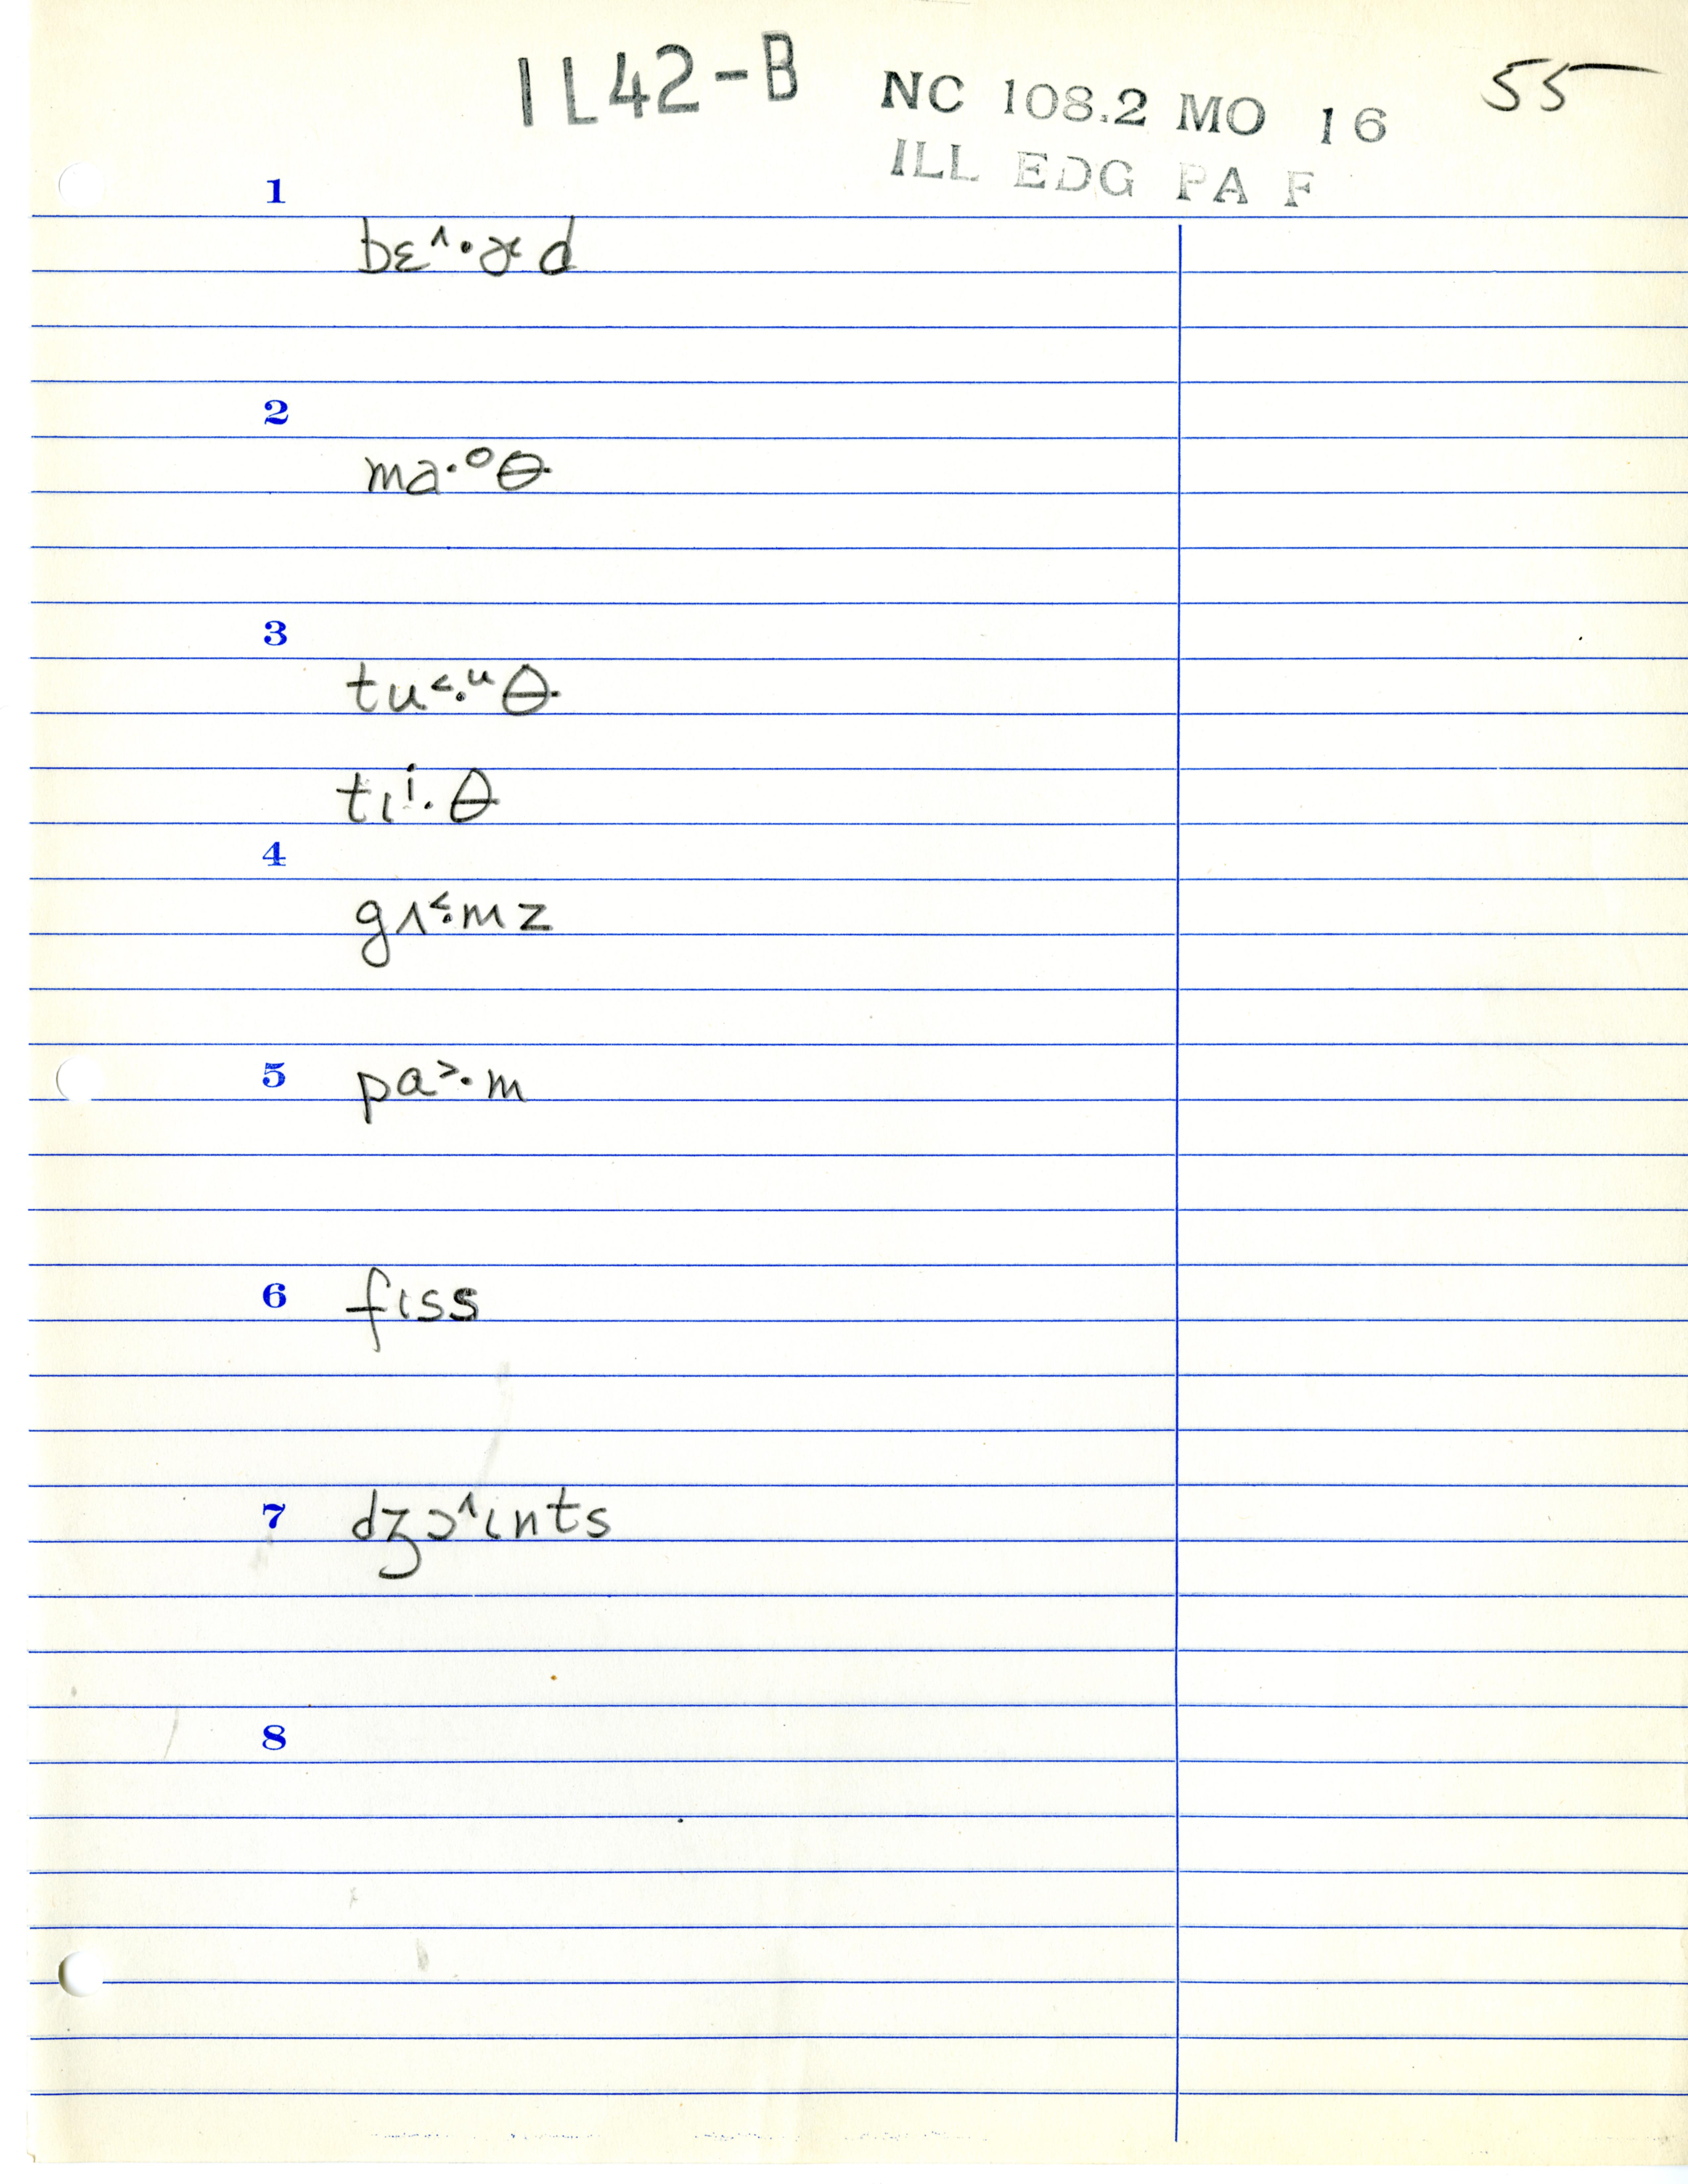 IL42-B NC 108.2 MO 16 55
ILL EDG PA F
1
bɛ˄·ɚd
2
ma·ᵒθ
3
tu˂·ᵘθ
tɪⁱ·θ
4
gʌ˂·mz
5 pɑ˃·m
6 fɪss
7 dʒɔ˄ɪnts
8